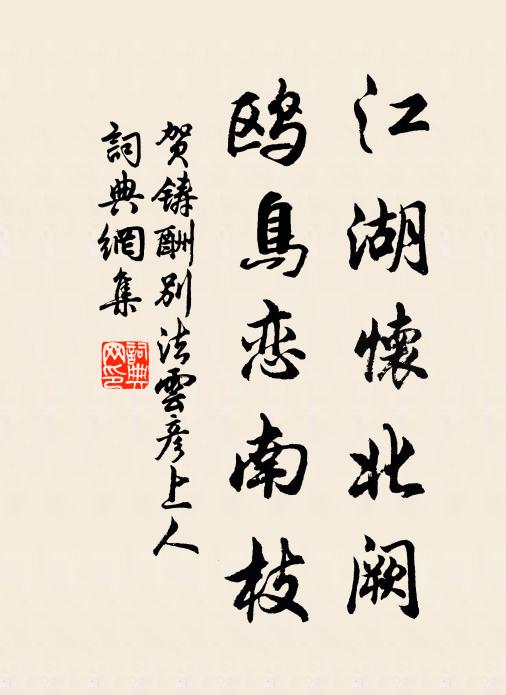 江湖懷北阙
鸥鳥恋南枝
贺鑄酬别法雲彦上人
詞典網集
詞典
网印